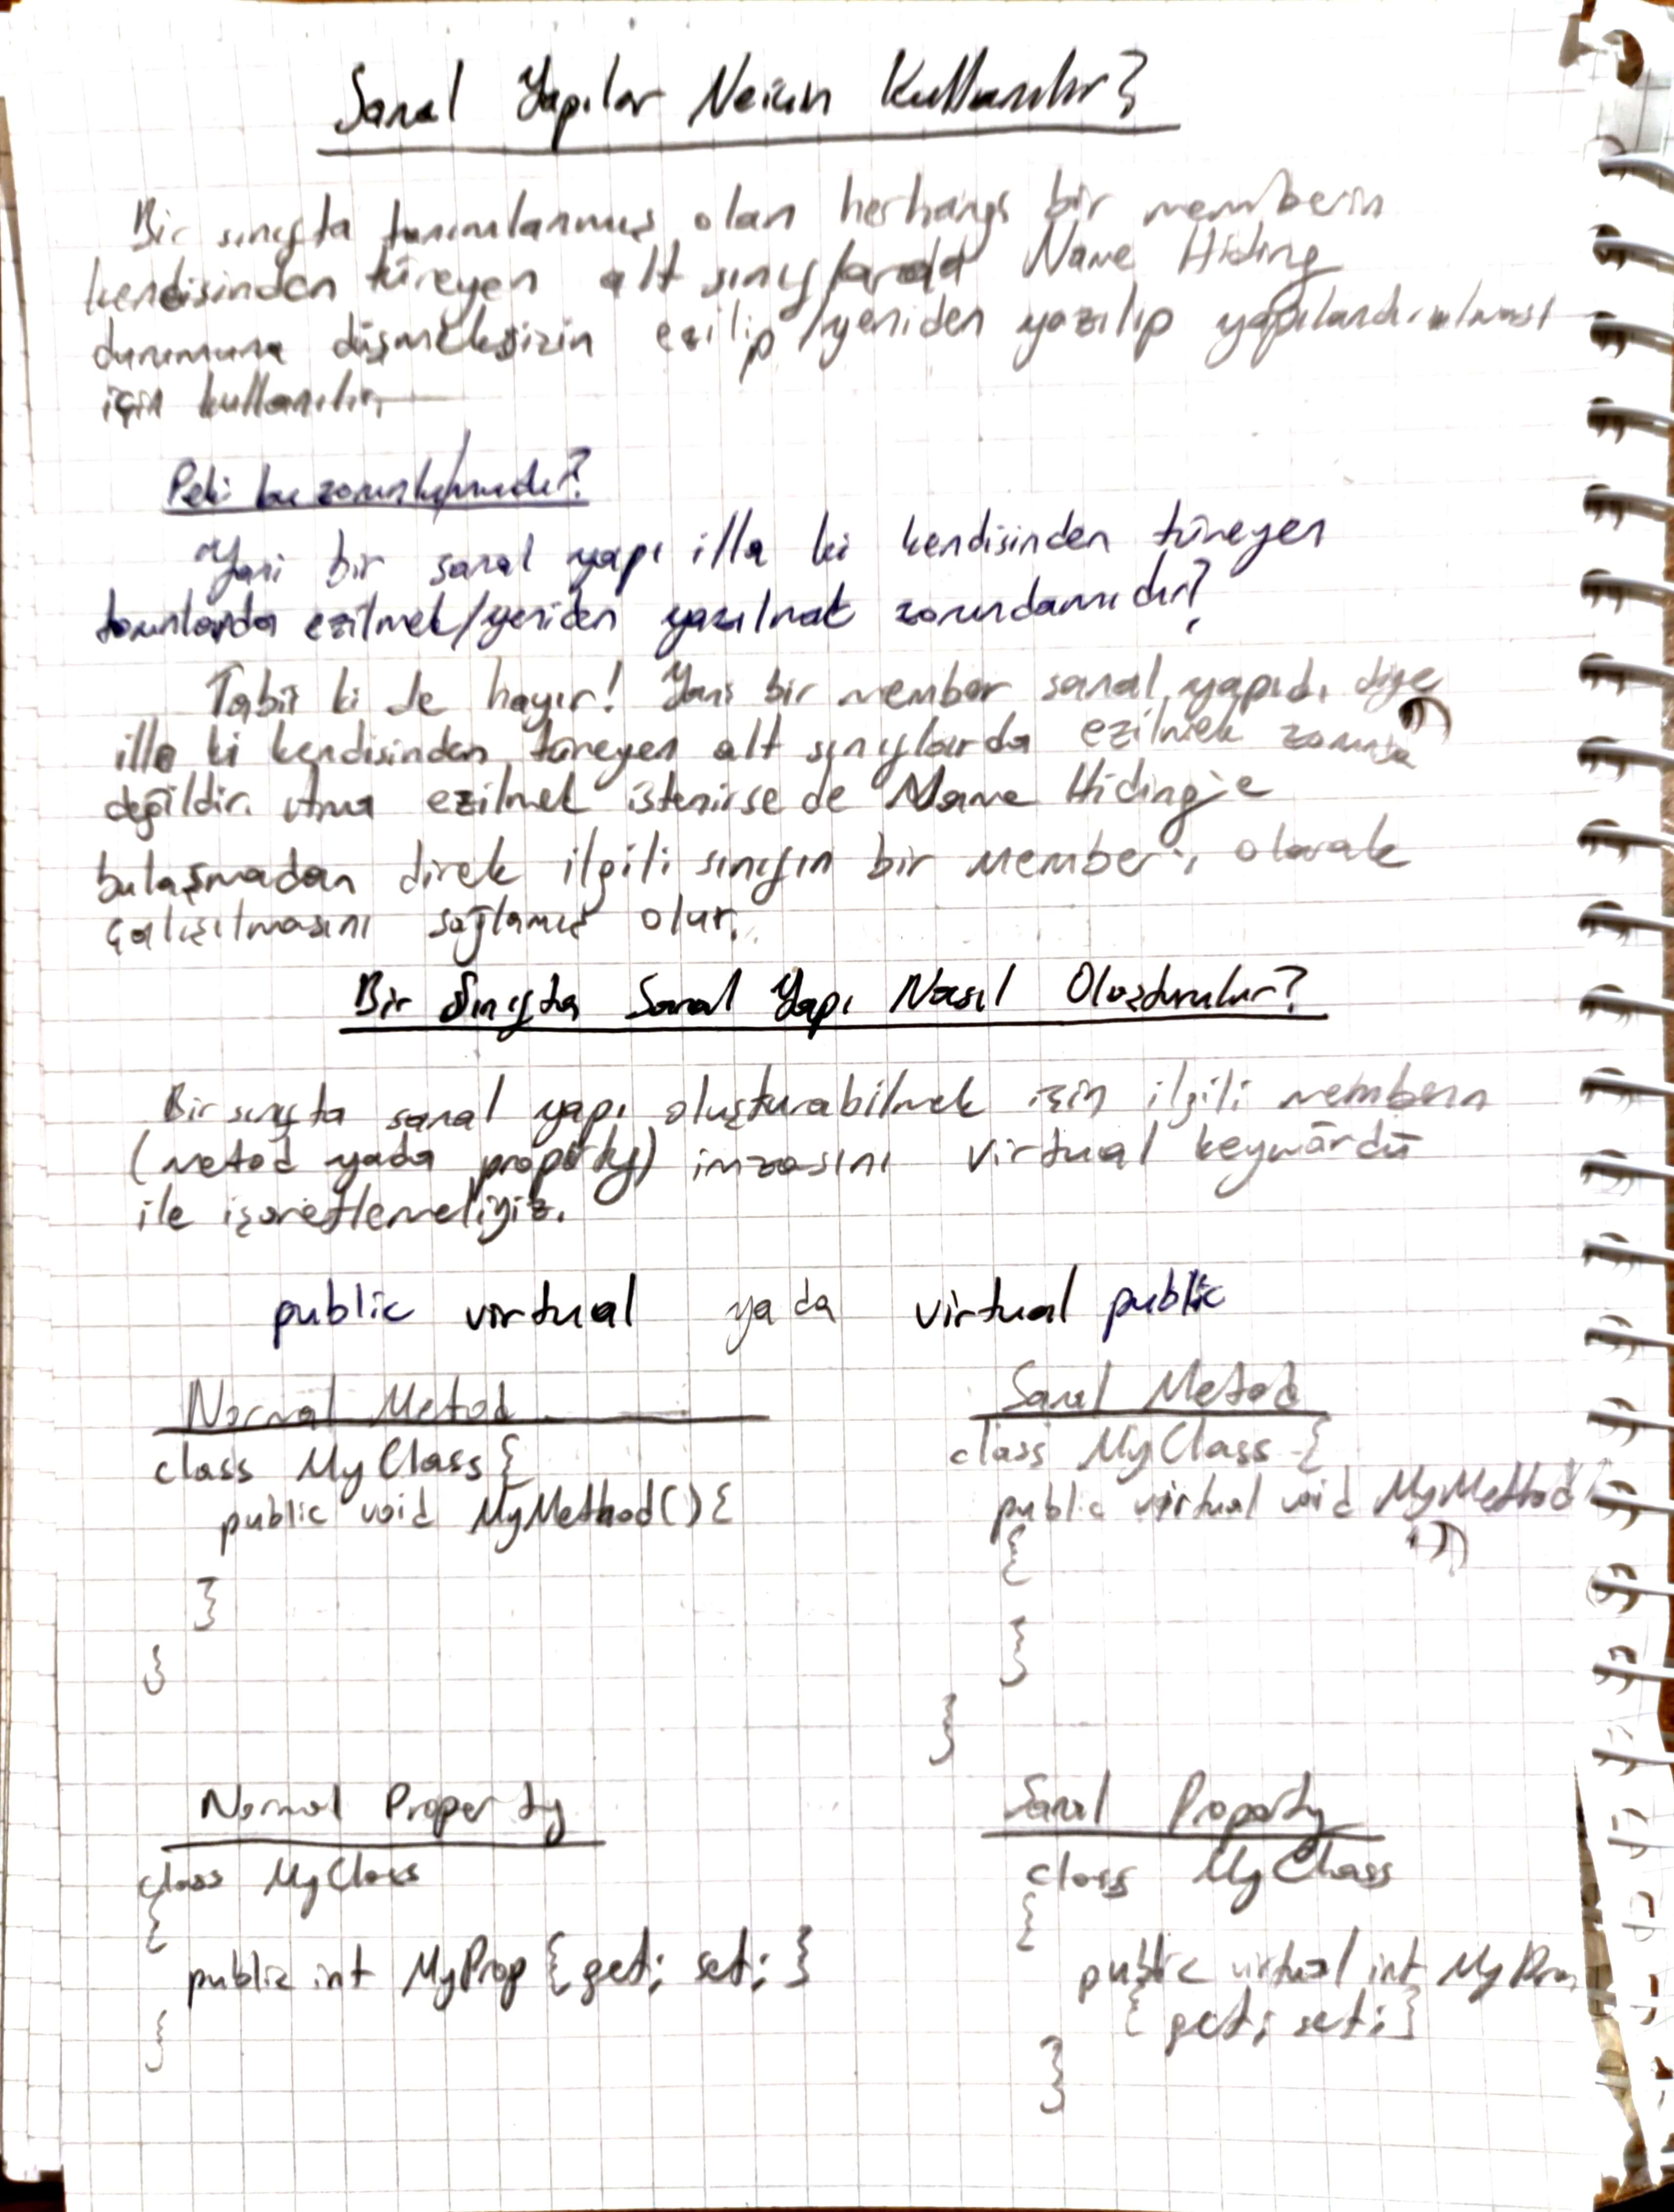 Sanal Yapılar Neiçin Kullanılır?
Bir sınıfta tanımlanmış olan herhangi bir memberın
kendisinden türeyen alt sınıflarda Name Hiding
durumuna düşmeksizin ezilip/yeniden yazılıp yapılandırılması
için kullanılır.
Peki bu zorunlumudur?
Yani bir sanal yapı illa ki kendisinden türeyen
torunlarda ezilmek/yeniden yazılmak zorundamıdır?
Tabii ki de hayır! Yani bir member sanal yapıdı diye
illa ki kendisinden türeyen alt sınıflarda ezilmek zorunda
değildir. Ama ezilmek istenirse de Name Hiding'e
bulaşmadan direk ilgili sınıfın bir member'ı olarak
çalışılmasını sağlamış olur.
Bir Sınıfta Sanal Yapı Nasıl Oluşturulur?
Bir sınıfta sanal yapı oluşturabilmek için ilgili memberın
(metod yada property) imzasını virtual keywördü
ile işaretlemeliyiz.
public virtual ya da virtual public
Normal Metod Sanal Metod
class MyClass{ class MyClass {
public void MyMethod(){ public virtual void MyMethod()
{
} }
} }
Normal Property Sanal Property
class MyClass class MyClass
{ {
public int MyProp {get; set;} public virtual int MyProp
{get; set;}
} }